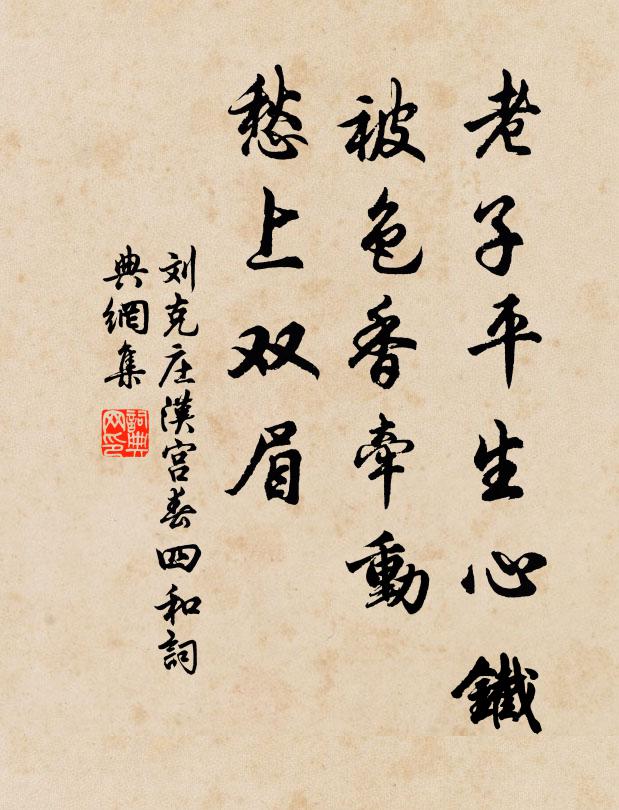 老子平生心鐵
被色香牽動
愁上双眉
刘克庄漢宫春四和詞
典網集
詞典网印